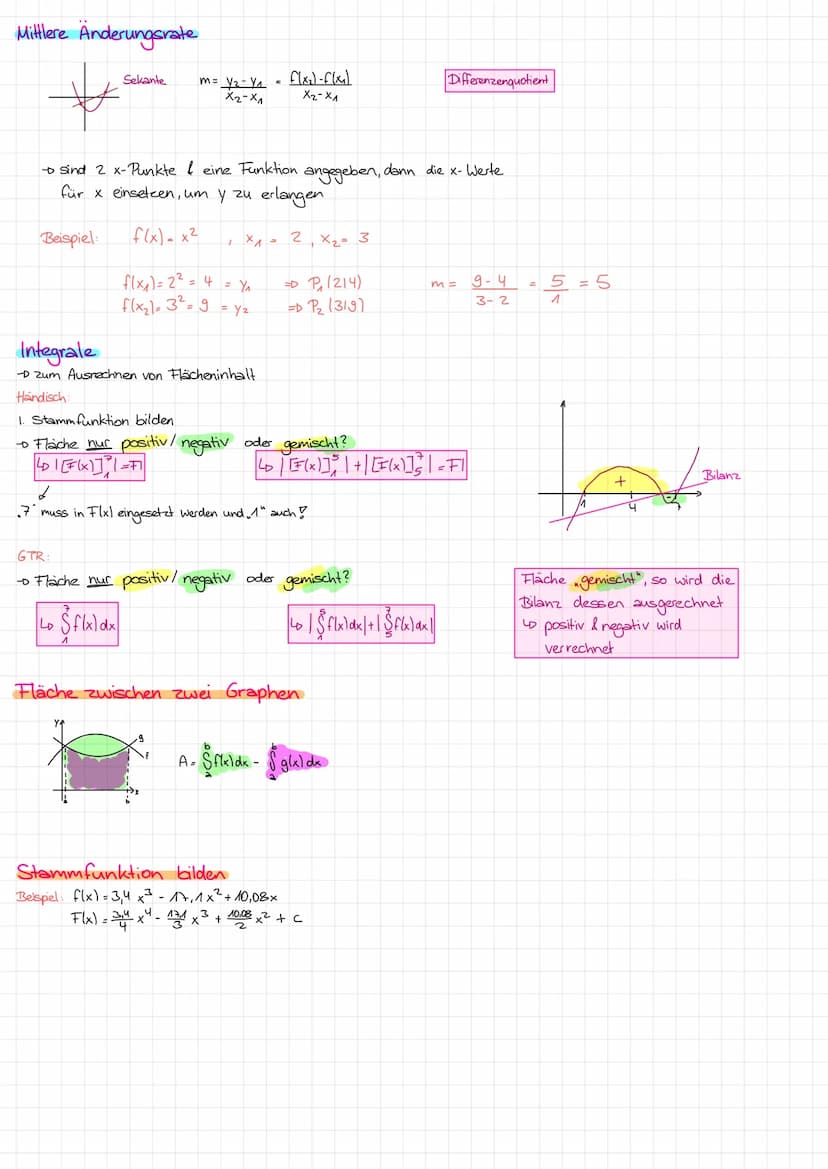 Mittlere Änderungsrate
Sekante
m = y₂ - y₁ / x₂ - x₁ = f(x₂) - f(x₁) / x₂ - x₁
Differenzenquotient
→ sind 2 x-Punkte & eine Funktion angegeben, dann die x-Werte
für x einsetzen, um y zu erlangen
Beispiel: f(x) = x² , x₁ = 2 , x₂ = 3
f(x₁) = 2² = 4 = y₁ ⇒ P₁ (2|4)
f(x₂) = 3² = 9 = y₂ ⇒ P₂ (3|9)
m = 9 - 4 / 3 - 2 = 5 / 1 = 5
Integrale
→ zum Ausrechnen von Flächeninhalt
Händisch:
1. Stammfunktion bilden
→ Fläche nur positiv / negativ oder gemischt?
↳ |[F(x)]₁⁷| = FI
↳ |[F(x)]₁⁵| + |[F(x)]₅⁷| = FI
„7" muss in F(x) eingesetzt werden und „1" auch!
+
-
1
4
7
Bilanz
GTR:
→ Fläche nur positiv / negativ oder gemischt?
↳ ∫₁⁷ f(x) dx
↳ |∫₁⁵ f(x) dx| + |∫₅⁷ f(x) dx|
Fläche „gemischt", so wird die
Bilanz dessen ausgerechnet
↳ positiv & negativ wird
verrechnet
Fläche zwischen zwei Graphen
y
g
f
x
a
b
A = ∫ₐᵇ f(x) dx - ∫ₐᵇ g(x) dx
Stammfunktion bilden
Beispiel: f(x) = 3,4 x³ - 17,1 x² + 10,08x
F(x) = 3,4/4 x⁴ - 17,1/3 x³ + 10,08/2 x² + c